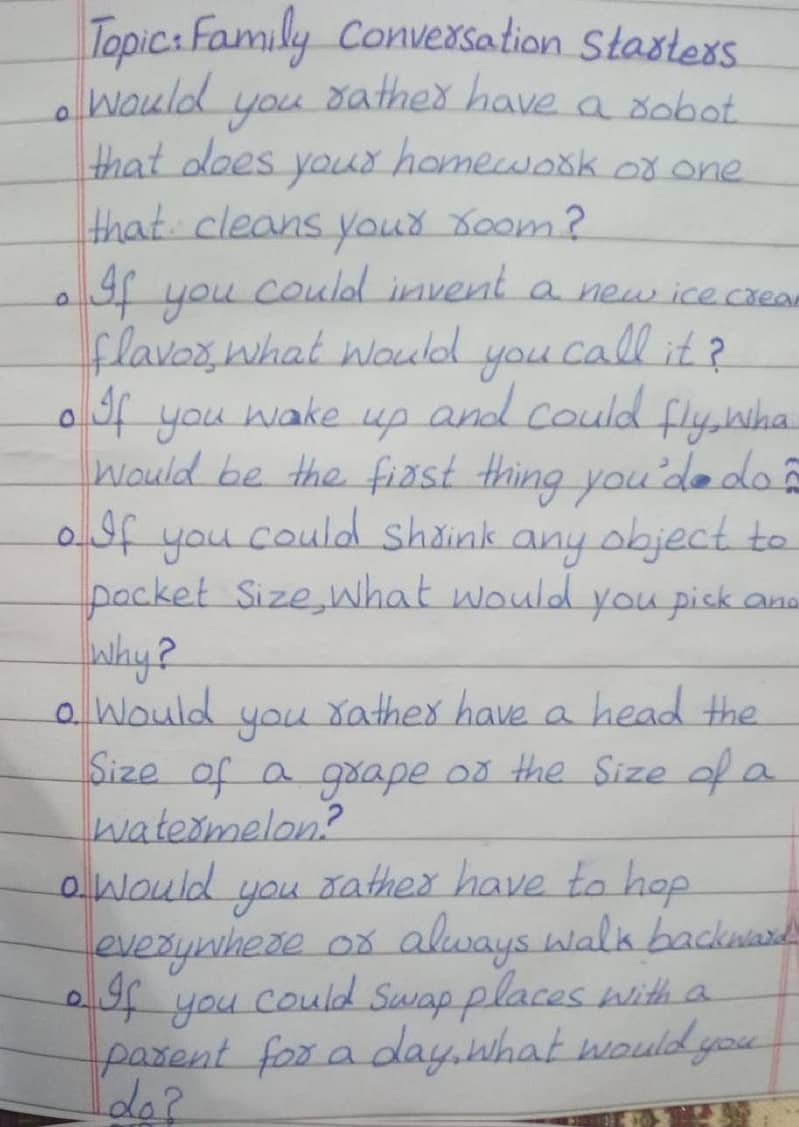 Topic: Family Conversation Starters
o Would you rather have a robot
that does your homework or one
that cleans your room?
o If you could invent a new ice crea
flavor, what would you call it?
o If you wake up and could fly, wha
would be the first thing you'd do?
o. If you could shrink any object to
pocket size, what would you pick and
why?
o. Would you rather have a head the
size of a grape or the size of a
watermelon?
o. Would you rather have to hop
everywhere or always walk backward
o. If you could swap places with a
parent for a day, what would you
do?